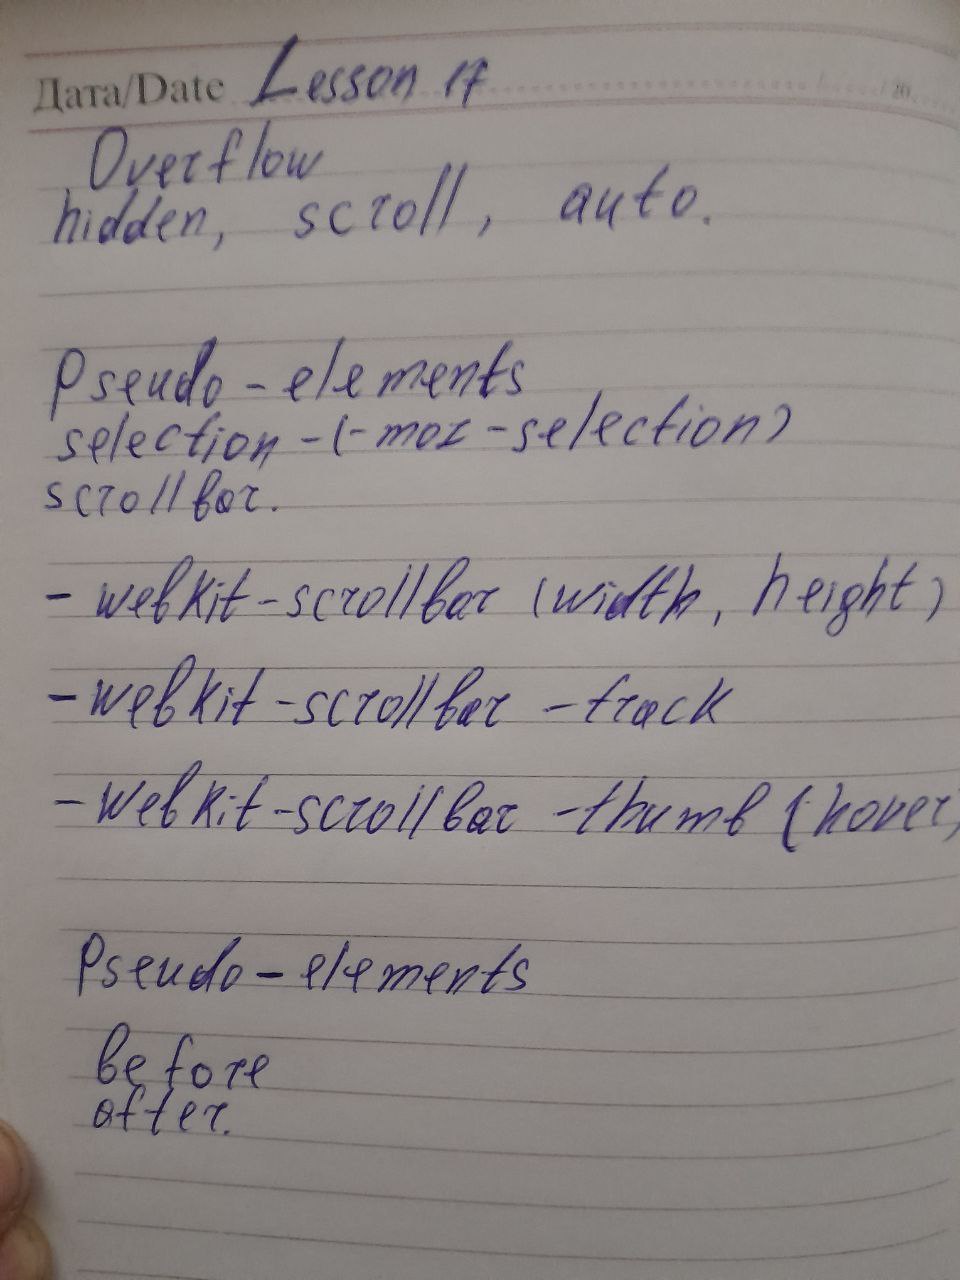 Дата/Date Lesson 17 /20
Overflow
hidden, scroll, auto.
Pseudo-elements
selection-(-moz-selection)
scrollbar.
- webkit-scrollbar (width, height)
- webkit-scrollbar-track
- webkit-scrollbar-thumb (hover)
Pseudo-elements
before
after.